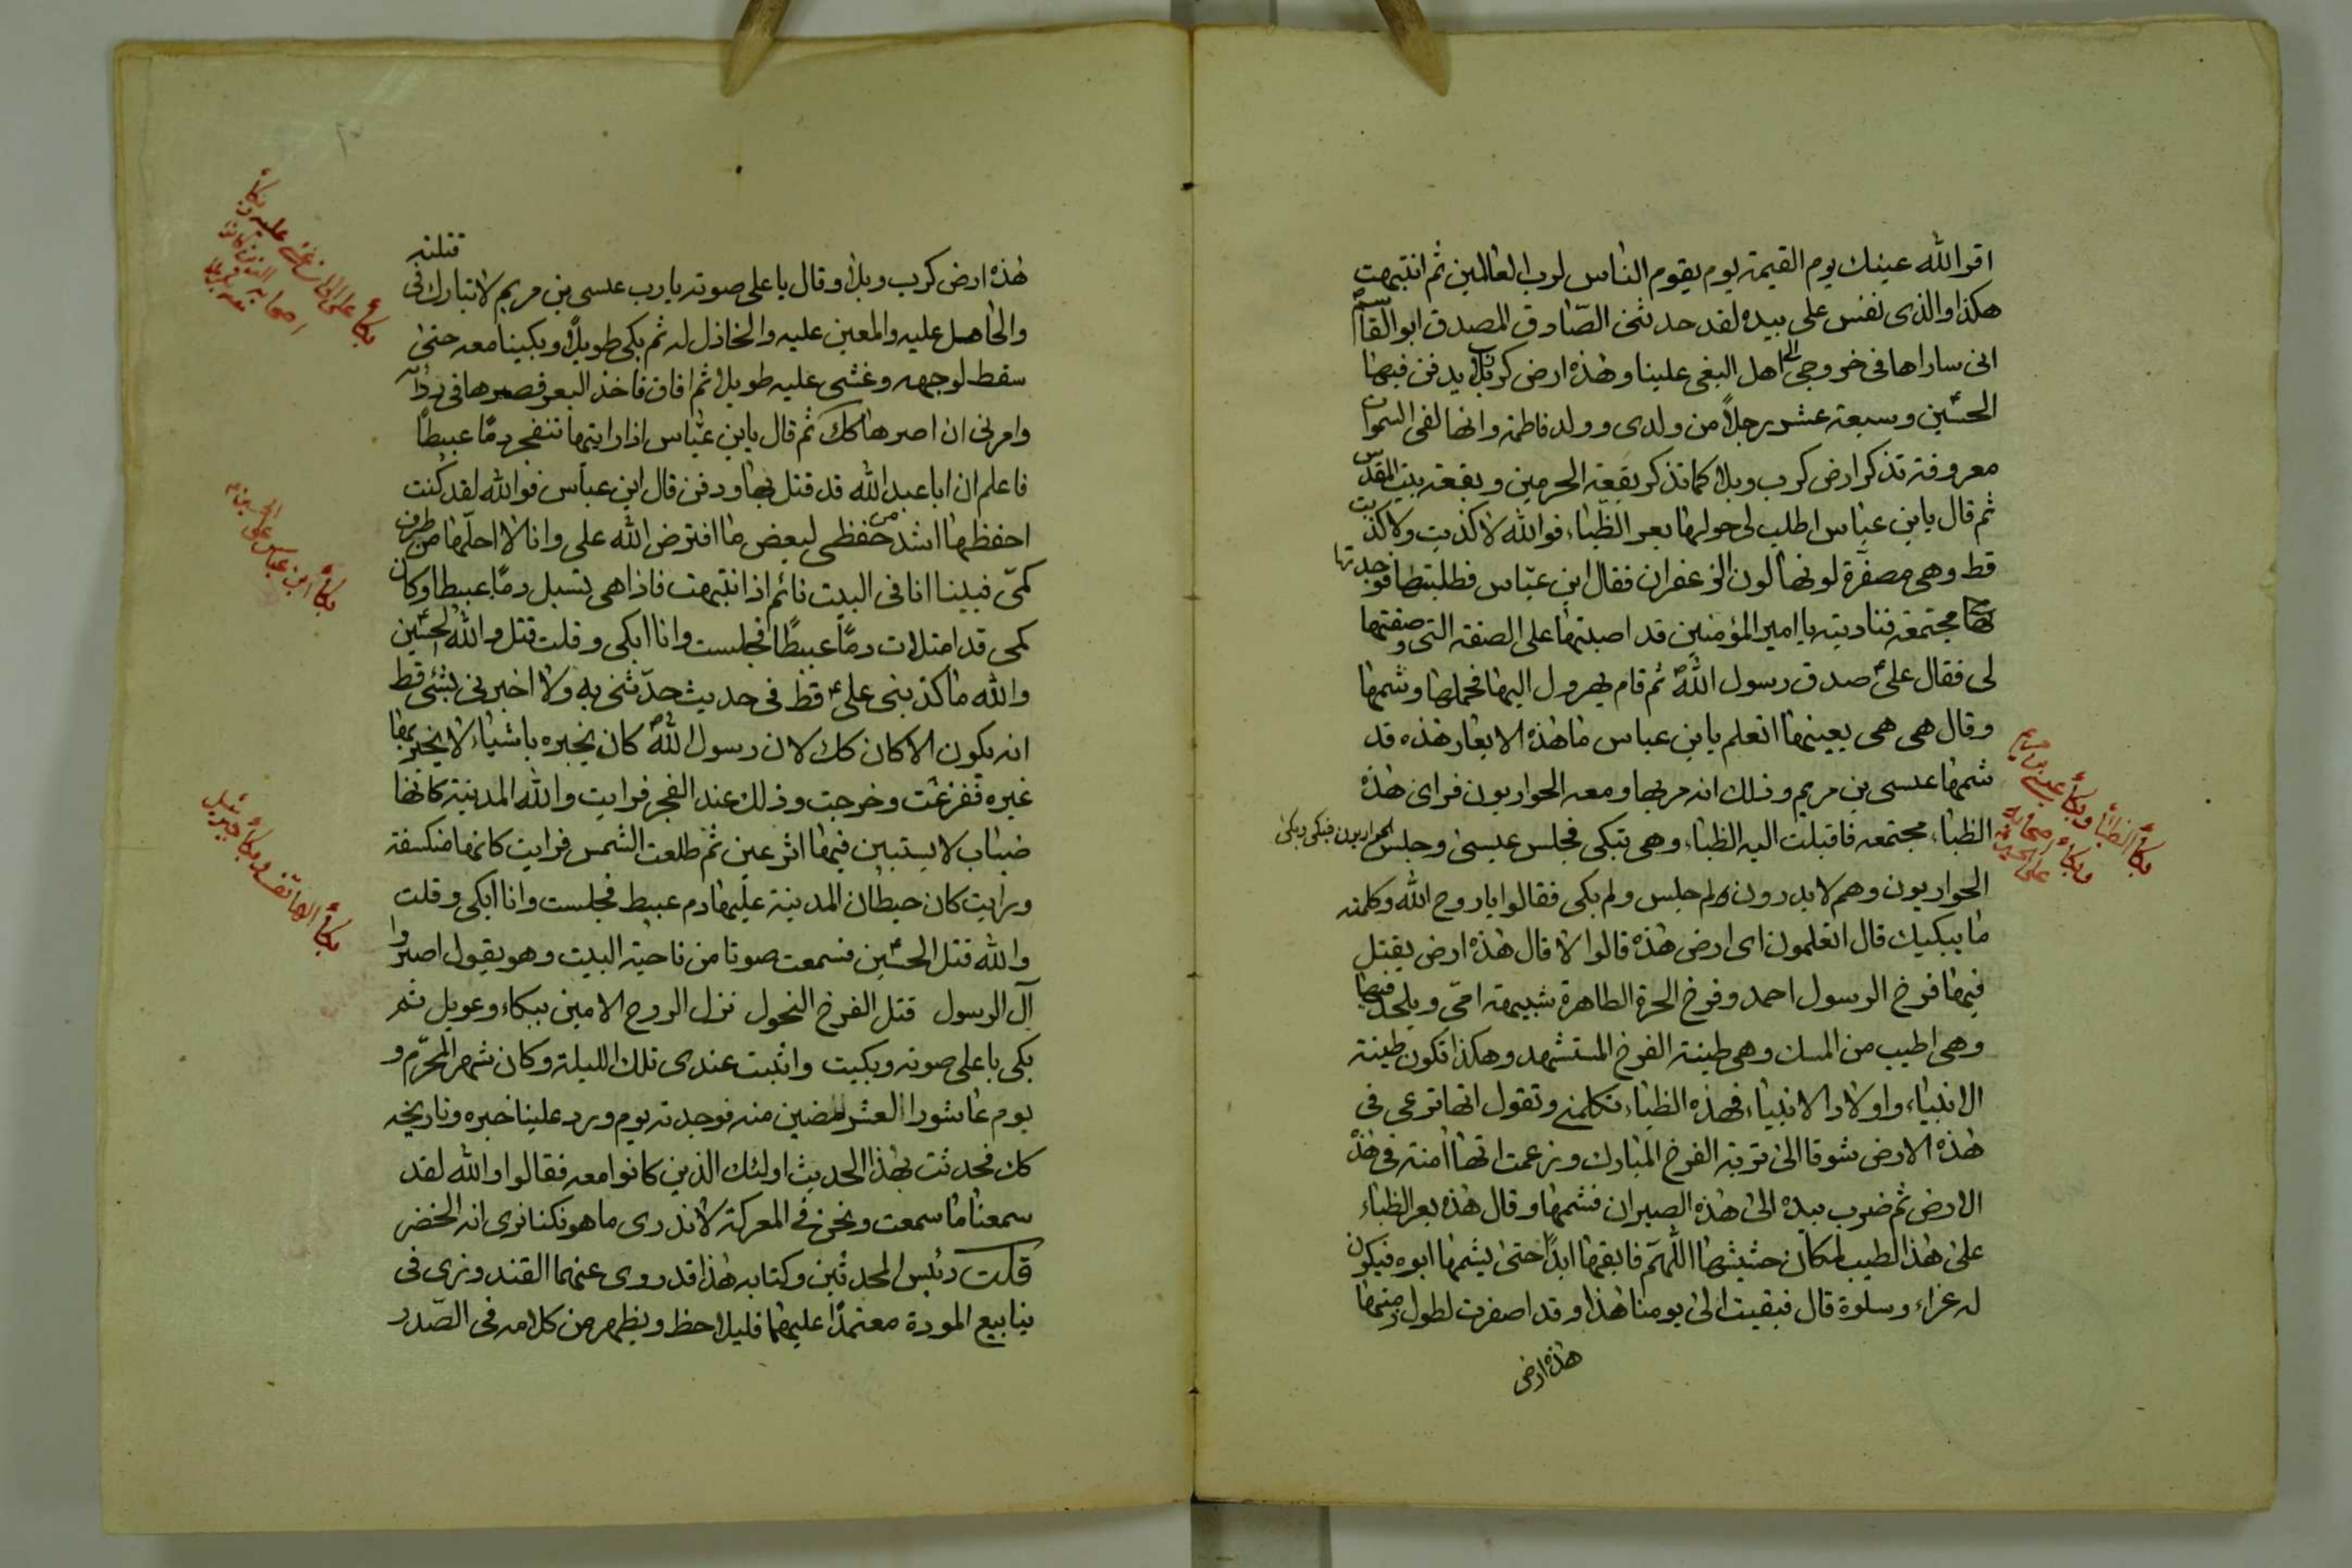 اقر الله عينك يوم القيمة يوم يقوم الناس لرب العالمين ثم انتبهت
هكذا والذى نفس على بيده لقد حدثنى الصّادق المصدق ابو القاسم
انى ساراها فى خروجى الى اهل البغى علينا وهذه ارض كربلا يدفن فيها
الحسين وسبعة عشر رجلاً من ولدى وولد فاطمة وانها لفى السموات
معروفة تذكر ارض كرب وبلا كما تذكر بقعة الحرمين وبقعة بيت المقدس
ثم قال يابن عباس اطلب لى حولها بعر الظباء فوالله لا كذبت ولا كذبت
قط وهى مصفرة لونها لون الزعفران فقال ابن عبّاس فطلبتها فوجدتها
مجتمعة فناديته يا امير المؤمنين قد اصبتها على الصفة التى وصفتها
لى فقال على صدق رسول الله ثم قام يهرول اليها فحملها وشمها
وقال هى هى بعينها اتعلم يابن عباس ما هذه الابعار هذه قد
شمها عيسى بن مريم وذلك انه مر بها ومعه الحواريون فراى هذه
الظباء مجتمعة فاقبلت اليه الظباء وهى تبكى فجلس عيسى وجلس الحواريون فبكى وبكى
الحواريون وهم لا يدرون لم جلس ولم بكى فقالوا يا روح الله وكلمته
ما يبكيك قال اتعلمون اى ارض هذه قالوا لا قال هذه ارض يقتل
فيها فرخ الرسول احمد وفرخ الحرة الطاهرة شبيهة امّى ويلحد فيها
وهى اطيب من المسك وهى طينة الفرخ المستشهد وهكذا تكون طينة
الانبياء واولاد الانبياء فهذه الظباء تكلمنى وتقول انها ترعى فى
هذه الارض شوقا الى تربة الفرخ المبارك وزعمت انها امنة فى هذه
الارض ثم ضرب بيده الى هذه الصيران فشمها وقال هذه بعر الظباء
على هذا الطيب لمكان حشيشها اللهم فابقها ابداً حتى يشمها ابوه فيكون
له عزاء وسلوة قال فبقيت الى يومنا هذا وقد اصفرت لطول زمنها
هذه ارض
بكاء الظباء وبكاء عيسى بن مريم
وبكاء اصحابه
على الحسين
قتلته
هذه ارض كرب وبلا وقال باعلى صوته يا رب عيسى بن مريم لا تبارك فى
والحامل عليه والمعين عليه والخاذل له ثم بكى طويلاً وبكينا معه حتى
سقط لوجهه وغشى عليه طويلا ثم افاق فاخذ البعر فصرها فى ردائه
وامرنى ان اصرها كك ثم قال يابن عبّاس اذا رايتها تنفجر دمًا عبيطًا
فاعلم ان ابا عبد الله قد قتل بها ودفن قال ابن عباس فوالله لقد كنت
احفظها اشد من حفظى لبعض ما افترض الله على وانا لا احلّها من طرف
كمّى فبينا انا فى البيت نائم اذ انتبهت فاذا هى تسيل دمًا عبيطا وكان
كمى قد امتلات دمًا عبيطًا فجلست وانا ابكى وقلت قتل والله الحسين
والله ما كذبنى على قط فى حديث حدّثنى به ولا اخبرنى بشئ قط
انه يكون الا كان كك لان رسول الله كان يخبره باشياء لا يخبر بها
غيره ففزعت وخرجت وذلك عند الفجر فرايت والله المدينة كانها
ضباب لا يستبين فيها اثر عين ثم طلعت الشمس فرايت كانها منكسفة
ورايت كان حيطان المدينة عليها دم عبيط فجلست وانا ابكى وقلت
والله قتل الحسين فسمعت صوتا من ناحية البيت وهو يقول اصبروا
آل الرسول قتل الفرخ النحول نزل الروح الامين ببكاء وعويل ثم
بكى باعلى صوته وبكيت واثبت عندى تلك الليلة وكان شهر المحرّم و
يوم عاشورا العشر مضين منه فوجدته يوم ورد علينا خبره وتاريخه
كك فحدثت بهذا الحديث اولئك الذين كانوا معه فقالوا والله لقد
سمعنا ما سمعت ونحن فى المعركة لا ندرى ما هو فكنا نرى انه الخضر
قلت رئيس المحدثين وكتابه هذا قد روى عنهما القندوزى فى
ينابيع المودة معتمدًا عليهما قليلاحظ ويظهر من كلامه فى الصّدر
بكاء ابن عباس على الحسين
بكاء الهاتف وبكاء جبرئيل